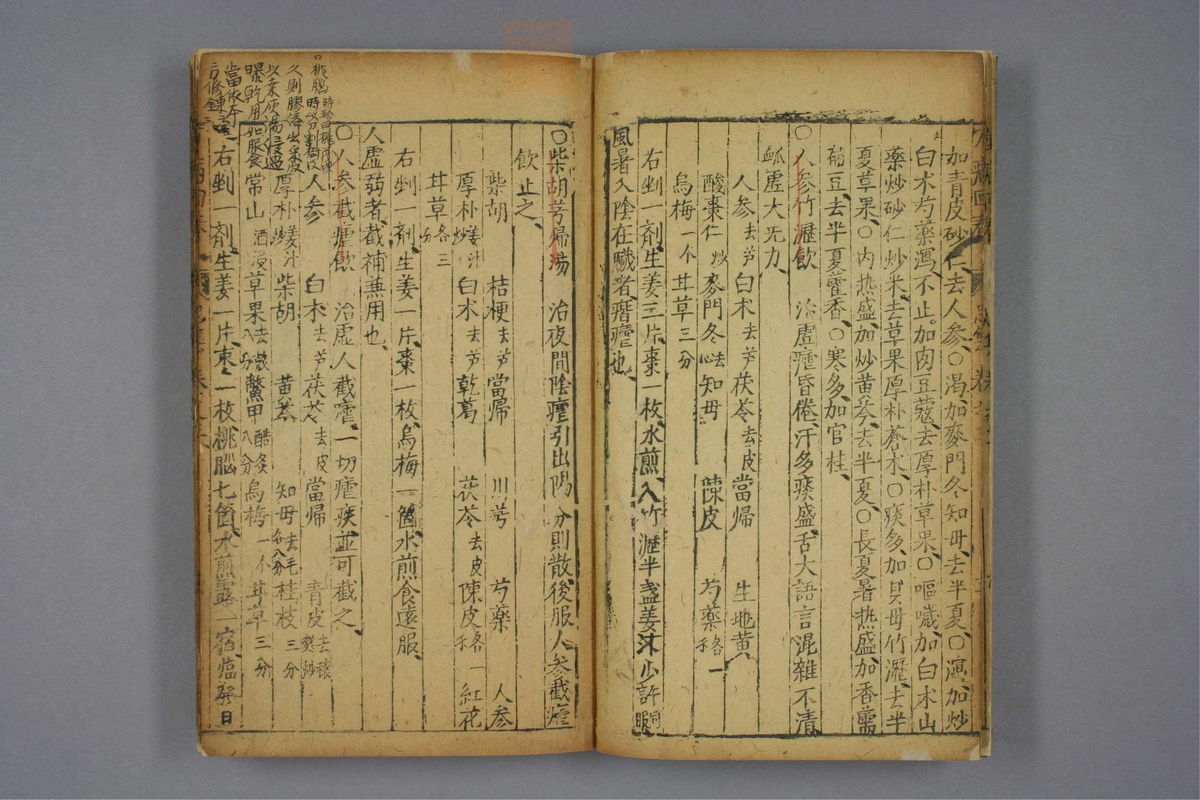 加青皮砂仁去人參○渴加麥門冬知母去半夏○瀉加炒
白朮芍藥瀉不止加肉豆蔻去厚朴草果○嘔噦加白朮山
藥炒砂仁炒米去草果厚朴蒼朮○痰多加貝母竹瀝去半
夏草果○內热盛加炒黃芩去半夏○長夏暑热盛加香薷
扁豆去半夏藿香○寒多加官桂
○人參竹瀝飲 治虛瘧昏倦汗多痰盛舌大語言混雜不清
脉虛大无力
人參去芦 白朮去芦 茯苓去皮 當歸 生地黃
酸棗仁炒 麥門冬去心 知母 陳皮 芍藥各一
烏梅一个 甘草三分
右剉一剂生姜三片棗一枚水煎入竹瀝半盞姜汁少許同服
風暑入陰在臟者瘖瘧也
○柴胡芎歸湯 治夜間陰瘧引出陽分則散後服人參截瘧
飲止之
柴胡 桔梗去芦 當歸 川芎 芍藥 人參
厚朴姜汁炒 白朮去芦 乾葛 茯苓去皮 陳皮各一 紅花
甘草各三分
右剉一剂生姜一片棗一枚烏梅一箇水煎食遠服
人虛弱者截補兼用也
○人參截瘧飲 治虛人截瘧一切瘧疾並可截之
人參 白朮去芦 茯苓去皮 當歸 青皮去穰
厚朴姜汁炒 柴胡 黃芩 知母去毛各八分 桂枝三分
常山酒浸 草果去殼八分 鱉甲醋炙八分 烏梅一个 甘草三分
右剉一剤生姜一片棗一枚桃腦七箇水煎露一宿臨發日